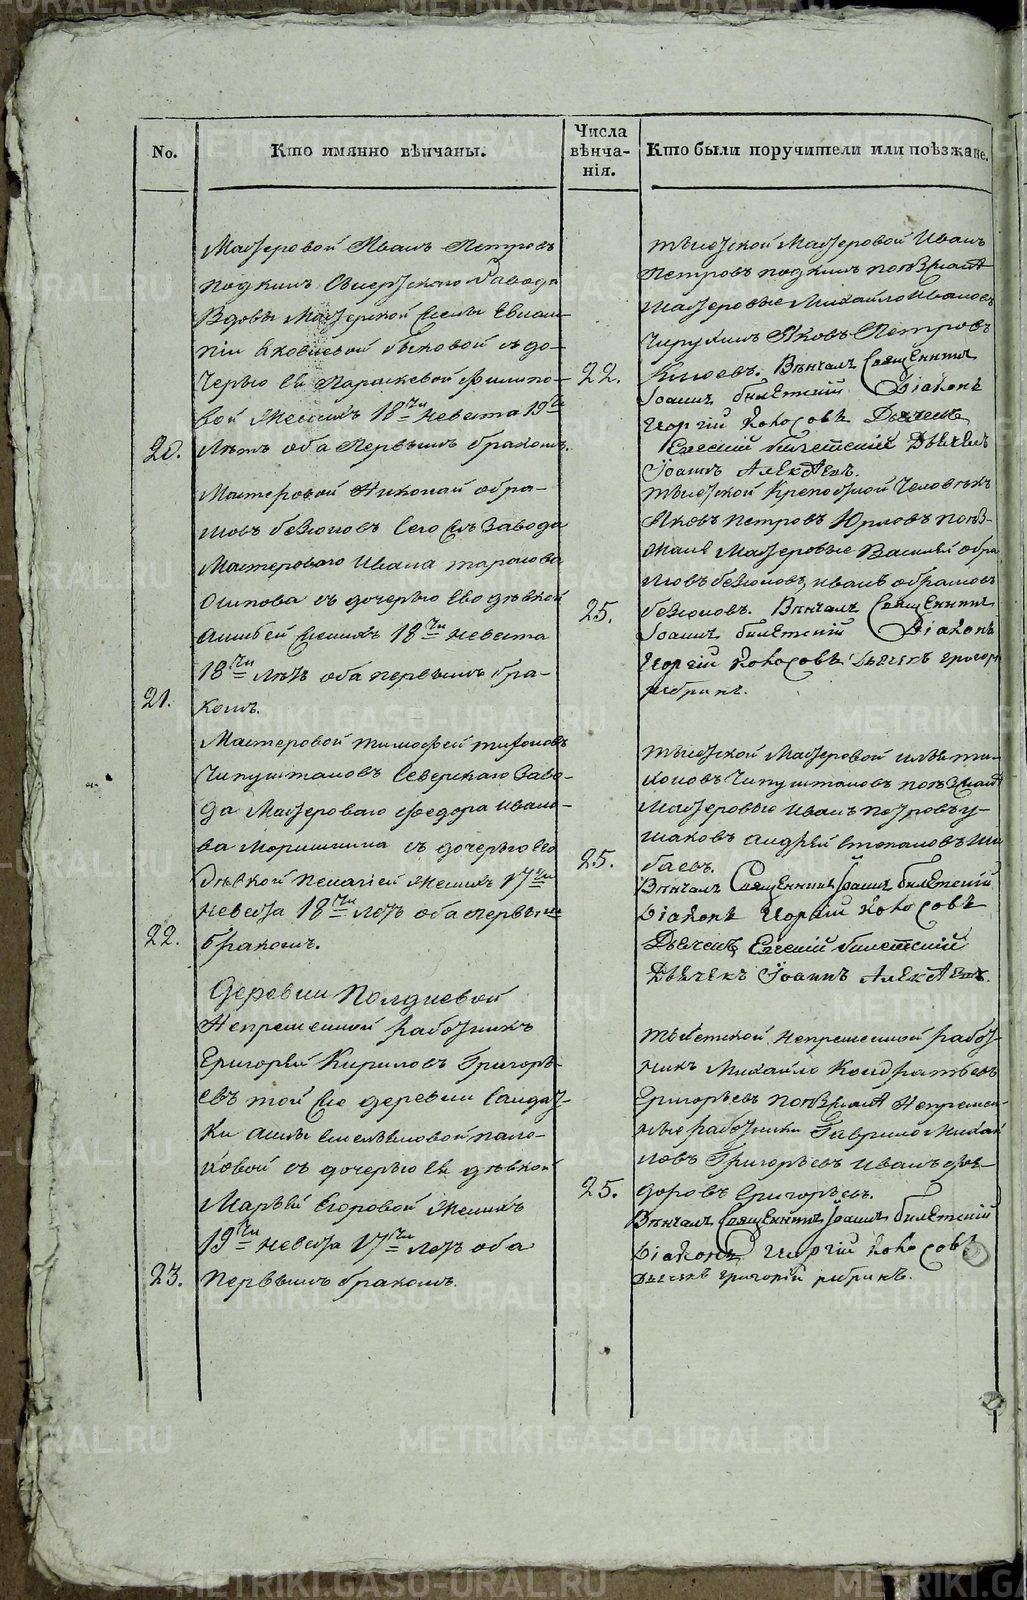 No.
Кто имянно вѣнчаны.
Числа
вѣнча-
нія.
Кто были поручители или поѣзжане.
Мастеровой Иванъ Петровъ
Подкинъ Сысертскаго Завода
Вдовы Мастерской жены Евлам-
піи Яковлевой Быковой съ до-
черью ея Параскевой Филипо-
вой Женихъ 18ти невеста 19ти
20.
лѣтъ оба Первымъ бракомъ.
22.
Мастеровой Иванъ
Петровъ подкинъ поѣзжанѣ
Мастеровые Михайло Ивановъ
Яковъ Петровъ
Вѣнчалъ Священникъ
Іоаннъ билетскій Діаконъ
Георгій Кокосовъ Дьячекъ
Евгеній билетскій Дьячекъ
Іоаннъ Алексѣевъ.
Мастеровой Николай абра-
мовъ безюковъ Сего же Завода
Мастероваго Ивана
Осипова съ дочерью Его дѣвкой
женихъ 18ти невеста
18ти лѣтъ оба первымъ бра-
21.
комъ.
25.
Человѣкъ
Яковъ Петровъ поѣз-
жанѣ Мастеровые Василей абра
мовъ безюковъ, иванъ абрамовъ
безюковъ. Вѣнчалъ Священникъ
Іоаннъ билетскій Діаконъ
Георгій Кокосовъ Дьячекъ григорій
рябринъ.
Мастеровой тимофей тихоновъ
Чипуштановъ Северскаго Заво-
да Мастероваго федора ивано-
ва съ дочерью его
дѣвкой Пелагіей Женихъ 17ти
невеста 18ти летъ оба первымъ
22.
бракомъ.
25.
Мастеровой ти-
хоновъ Чипуштановъ поѣзжанѣ
Мастеровые Иванъ Петровъ у-
шаковъ андрей степановъ
баевъ.
Вѣнчалъ Священникъ Іоаннъ билетскій
Діаконъ Георгій Кокосовъ
Дьячекъ Евгеній билетскій
Дьячекъ Іоаннъ Алексѣевъ.
Деревни Полдневой
Непременной работникъ
Григорей Кириловъ Григорь-
евъ той же деревни
съ дочерью ея дѣвкой
Марьей Егоровой Женихъ
19ти невеста 17ти летъ оба
23.
Первымъ бракомъ.
25.
непременной работ-
никъ Михайло Кондратьевъ
Григорьевъ поѣзжанѣ Непремен-
ные работники Гаврило Михай
ловъ Григорьевъ Иванъ Фе-
доровъ Григорьевъ.
Вѣнчалъ Священникъ Іоаннъ билетскій
Діаконъ Георгій Кокосовъ
Дьячекъ григорій рябринъ.
METRIKI.GASO-URAL.RU